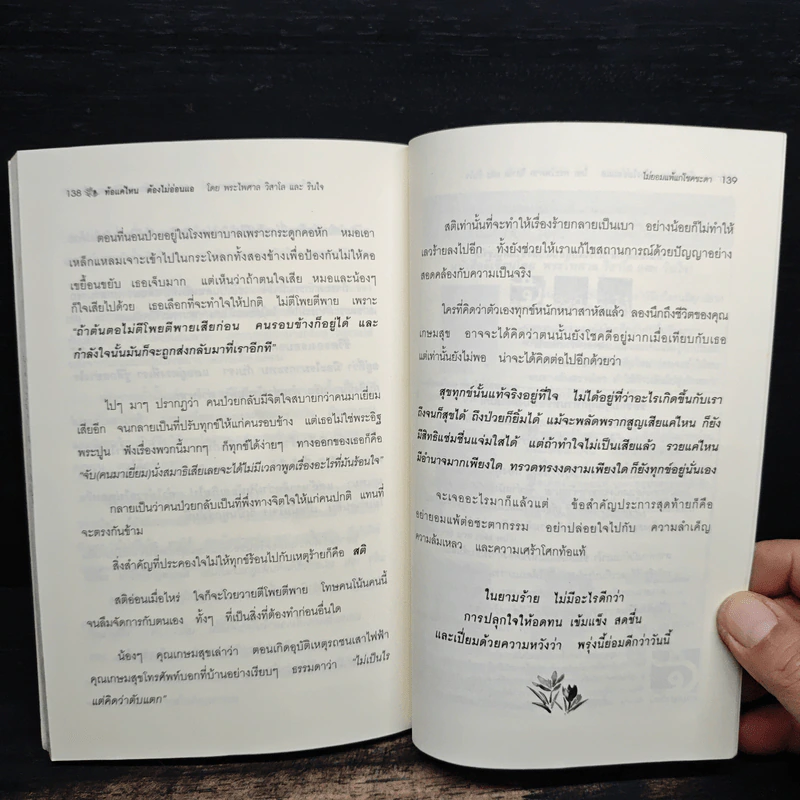 138 ท้อแค่ไหน ต้องไม่อ่อนแอ โดย พระไพศาล วิสาโล และ รินใจ
ตอนที่นอนป่วยอยู่ในโรงพยาบาลเพราะกระดูกคอหัก หมอเอา
เหล็กแหลมเจาะเข้าไปในกระโหลกทั้งสองข้างเพื่อป้องกันไม่ให้คอ
เขยื้อนขยับ เธอเจ็บมาก แต่เห็นว่าถ้าตนใจเสีย หมอและน้องๆ
ก็ใจเสียไปด้วย เธอเลือกที่จะทำใจให้ปกติ ไม่ตีโพยตีพาย เพราะ
"ถ้าต้นตอไม่ตีโพยตีพายเสียก่อน คนรอบข้างก็อยู่ได้ และ
กำลังใจนั้นมันก็จะถูกส่งกลับมาที่เราอีกที"
ไปๆ มาๆ ปรากฏว่า คนป่วยกลับมีจิตใจสบายกว่าคนมาเยี่ยม
เสียอีก จนกลายเป็นที่ปรับทุกข์ให้แก่คนรอบข้าง แต่เธอไม่ใช่พระอิฐ
พระปูน ฟังเรื่องพวกนี้มากๆ ก็ทุกข์ได้ง่ายๆ ทางออกของเธอก็คือ
"จับ(คนมาเยี่ยม)นั่งสมาธิเสียเลยจะได้ไม่มีเวลาพูดเรื่องอะไรที่มันร้อนใจ"
กลายเป็นว่าคนป่วยกลับเป็นที่พึ่งทางจิตใจให้แก่คนปกติ แทนที่
จะตรงกันข้าม
สิ่งสำคัญที่ประคองใจไม่ให้ทุกข์ร้อนไปกับเหตุร้ายก็คือ สติ
สติอ่อนเมื่อไหร่ ใจก็จะโวยวายตีโพยตีพาย โทษคนโน้นคนนี้
จนลืมจัดการกับตนเอง ทั้งๆ ที่เป็นสิ่งที่ต้องทำก่อนอื่นใด
น้องๆ คุณเกษมสุขเล่าว่า ตอนเกิดอุบัติเหตุรถชนเสาไฟฟ้า
คุณเกษมสุขโทรศัพท์บอกที่บ้านอย่างเรียบๆ ธรรมดาว่า "ไม่เป็นไร
แต่คิดว่าตับแตก"
ไม่ยอมแพ้แก่โชคชะตา 139
สติเท่านั้นที่จะทำให้เรื่องร้ายกลายเป็นเบา อย่างน้อยก็ไม่ทำให้
เลวร้ายลงไปอีก ทั้งยังช่วยให้เราแก้ไขสถานการณ์ด้วยปัญญาอย่าง
สอดคล้องกับความเป็นจริง
ใครที่คิดว่าตัวเองทุกข์หนักหนาสาหัสแล้ว ลองนึกถึงชีวิตของคุณ
เกษมสุข อาจจะได้คิดว่าตนนั้นยังโชคดีอยู่มากเมื่อเทียบกับเธอ
แต่เท่านั้นยังไม่พอ น่าจะได้คิดต่อไปอีกด้วยว่า
สุขทุกข์นั้นแท้จริงอยู่ที่ใจ ไม่ได้อยู่ที่ว่าอะไรเกิดขึ้นกับเรา
ถึงจนก็สุขได้ ถึงป่วยก็ยิ้มได้ แม้จะพลัดพรากสูญเสียแค่ไหน ก็ยัง
มีสิทธิแช่มชื่นแจ่มใสได้ แต่ถ้าทำใจไม่เป็นเสียแล้ว รวยแค่ไหน
มีอำนาจมากเพียงใด ทรวดทรงงดงามเพียงใด ก็ยังทุกข์อยู่นั่นเอง
จะเจออะไรมาก็แล้วแต่ ข้อสำคัญประการสุดท้ายก็คือ
อย่ายอมแพ้ต่อชะตากรรม อย่าปล่อยใจไปกับ ความลำเค็ญ
ความล้มเหลว และความเศร้าโศกท้อแท้
ในยามร้าย ไม่มีอะไรดีกว่า
การปลุกใจให้อดทน เข้มแข็ง สดชื่น
และเปี่ยมด้วยความหวังว่า พรุ่งนี้ย่อมดีกว่าวันนี้